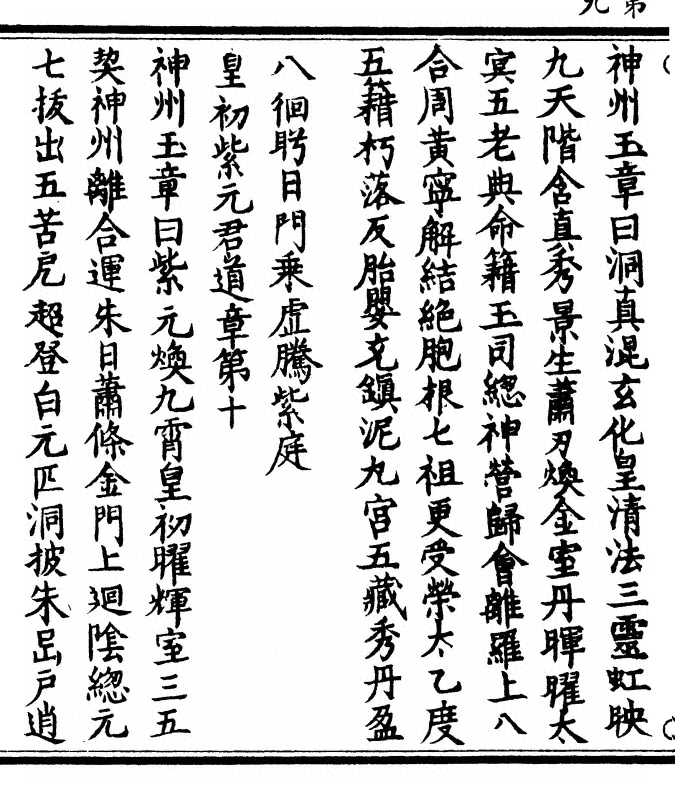 神州玉章曰洞真混玄化皇清法三靈虹映
九天階含真秀景生蕭刃煥金室丹暉曜太
冥五老典命籍玉司總神營歸會離羅上八
合周黃寧解結絕胞根七祖更受榮太乙度
五籍朽落反胎嬰充鎮泥丸宮五藏秀丹盈
八徊盻日門乘虛騰紫庭
皇初紫元君道章第十
神州玉章曰紫元煥九霄皇初曜輝室三五
契神州離合運朱日蕭條金門上廻陰總元
七拔出五苦戹超登白元匹洞披朱戶逍